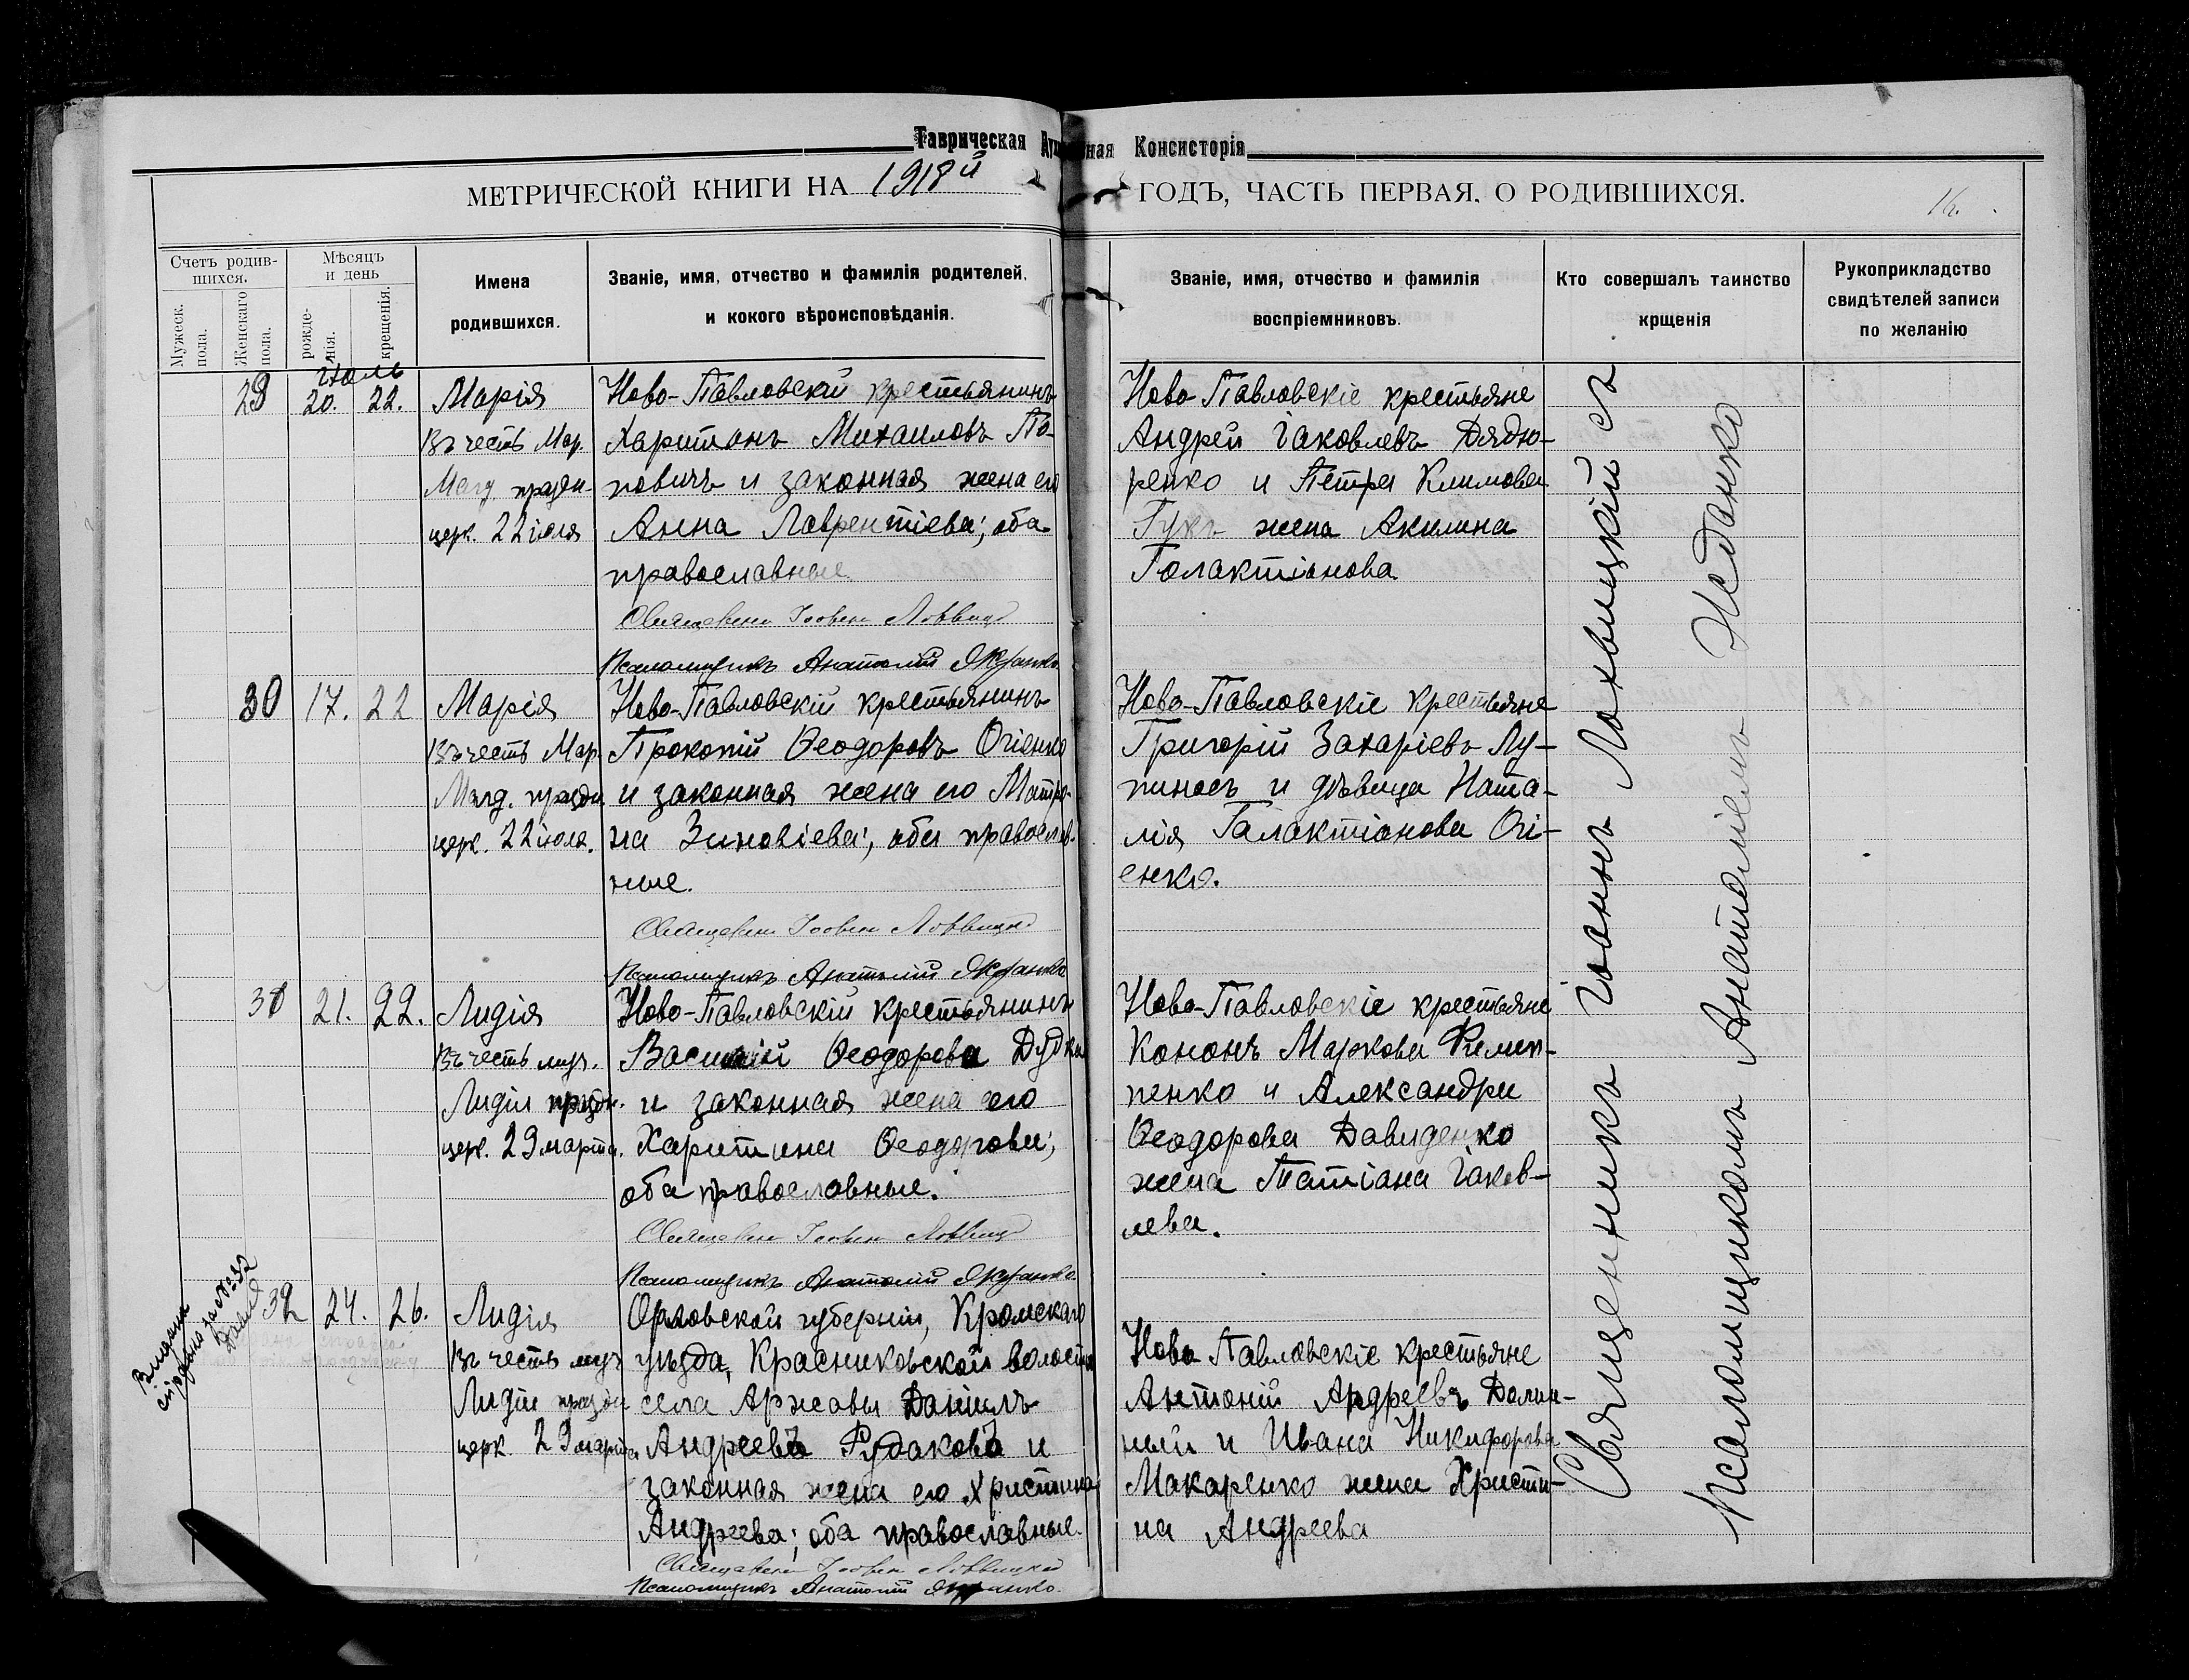 Таврическая Духовная Консисторія
МЕТРИЧЕСКОЙ КНИГИ НА 1918й ГОДЪ, ЧАСТЬ ПЕРВАЯ. О РОДИВШИХСЯ.
16.
Счетъ родив-
шихся.
Мужеск.
пола.
Женскаго
пола.
Мѣсяцъ
и день
рожде-
нія.
крещенія.
Имена
родившихся.
Званіе, имя, отчество и фамилія родителей,
и кокого вѣроисповѣданія.
Званіе, имя, отчество и фамилія
воспріемниковъ.
Кто совершалъ таинство
крщенія
Рукоприкладство
свидѣтелей записи
по желанію
Іюль
29 20. 22. Марія
Въ честь Мар.
Магд. праздн.
церк. 22 іюля
Ново-Павловскій крестьянинъ
Харитонъ Михаиловъ По-
повичъ и законная жена его
Анна Лаврентіева; оба
православные.
Псаломщикъ Анатолій
Ново-Павловскіе крестьяне
Андрей Іаковлевъ Дядю-
ренко и Петра Климова
Гукъ жена Акилина
Галактіонова
30 17. 22 Марія
Въ честь Мар.
Магд. праздн.
церк. 22 іюля.
Ново-Павловскій крестьянинъ
Прокопій Ѳеодоровъ Огіенко
и законная жена его Матро-
на Зиновіева; оба православ-
ные.
Псаломщикъ Анатолій
Ново-Павловскіе крестьяне
Григорій Захаріевъ Лу-
пиносъ и дѣвица Ната-
лія Галактіонова Огі-
енко.
31 21. 22. Лидія
Въ честь муч.
Лидіи праздн.
церк. 23 марта.
Ново-Павловскій крестьянинъ
Василій Ѳеодорова Дудка
и законная жена его
Харитина Ѳеодорова;
оба православные.
Псаломщикъ Анатолій
Ново-Павловскіе крестьяне
Кононъ Маркова Филип-
пенко и Александра
Ѳеодорова Давиденко
жена Татіана Іаков-
лева.
32 24. 26. Лидія
Въ честь муч.
Лидіи праздн
церк 23 марта
Орловской губерніи, Кромскаго
уѣзда, Красниковской волости
села Аржавы Даніилъ
Андреевъ Рудаковъ и
законная жена его Христина
Андреева; оба православные.
Псаломщикъ Анатолій
Ново Павловскіе крестьяне
Антоній Андреевъ Долин-
ный и Ивана Никифорова
Макаренко жена Христи-
на Андреева
Священникъ Іоаннъ Лохвицкій съ
Псаломщикомъ Анатоліемъ